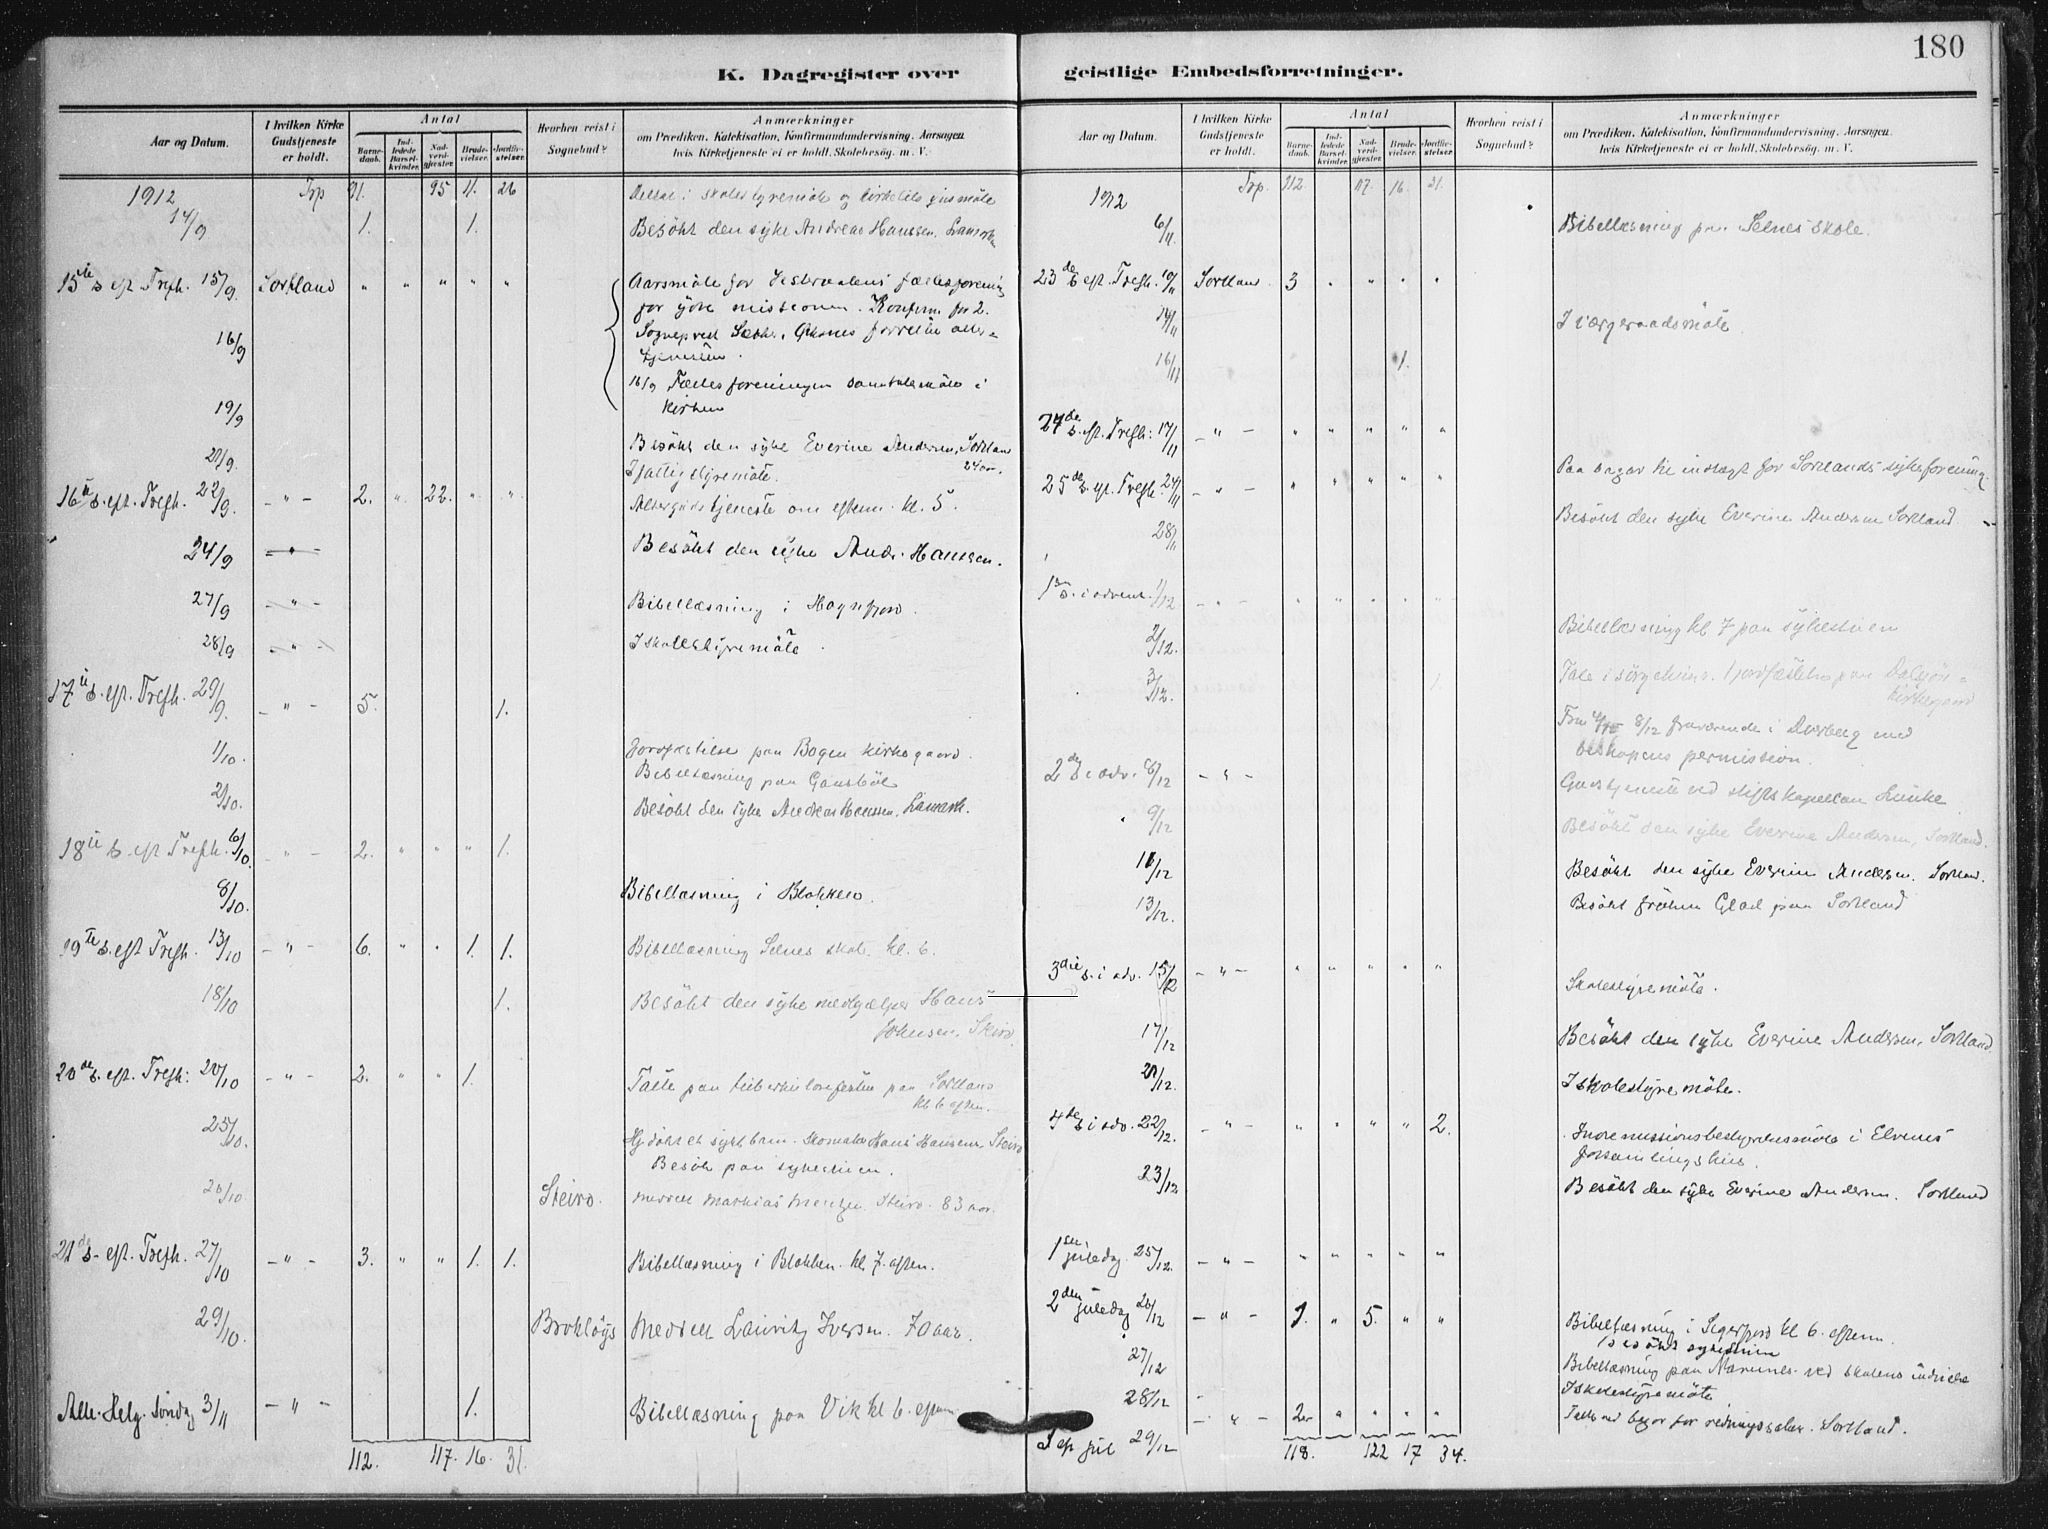 180
K. Dagregister over geistlige Embedsforretninger.
Aar og Datum. I hvilken Kirke Gudstjeneste er holdt. Antal Barnedaab. Indledede Barselkvinder. Nadverdgjester. Brudevielser. Jordfæstelser. Hvorhen reist i Sognebud? Anmærkninger om Prædiken, Katekisation, Konfirmandundervisning, Aarsagen, hvis Kirketjeneste ei er holdt, Skolebesøg, m. V.
1912 Trp 91. 95 11. 26
14/9 1. 1. Besökt den syke Andreas Hanssen,
15de s. eft. Trefh. 15/9 Sortland " " " " " Aarsmöte for Vesteraalens fællesforening
for
Sogneprest
16/9
16/9 Fællesforeningen samtalemöte i
kirken
19/9 Besökt den syke Everine Andersen, Sortland
24 aar.
21/9. I fattigstyremöte.
16de s. eft. Trefh. 22/9. - " - 2. " 22. " " Altergudstjeneste om efterm. kl. 5.
24/9 - " - Besökt den syke Andr. Hanssen.
27/9 - " - Bibellæsning i Hognfjord.
28/9 - " - I skolestyremöte.
17de s. eft. Trefh. 29/9. - " - 5. 1.
1/10. Jordfæstelse paa Bogen kirkegaard.
Bibellæsning paa
2/10. Besökt den syke Andreas Hanssen,
18de s. eft. Trefh. 6/10. - " - 2. " " " 1.
8/10. Bibellæsning i Blokken.
19de s. eft Trefh. 13/10 - " - 6. " " 1. 1. Bibellæsning Selnes skole kl. 6.
18/10 1. Besökt den syke medhjælper Hans
Johnsen, Steiro.
20de s. eft. Trefh: 20/10 - " - 2. " " 1. Talte paa tuberkulosefesten paa Sortland
kl 6 aften.
25/10. Hj.döpt et sykt barn. Skomaker Hans Hansen, Steiro
Besök paa sykestuen.
26/10 Steiro. Meddelt Mathias Mentzen. Steiro. 83 aar.
21de s. eft. Trefh. 27/10 - " - 3. " " 1. 1. Bibellæsning i Blokken. kl. 7. aften.
29/10. Brokløys Meddelt Lauritz Iversen. 70 aar.
Alle-Helg. söndag 3/11 - " - 1. Bibellæsning paa Vik kl 6. efterm.
112. 117. 16. 31.
Aar og Datum. I hvilken Kirke Gudstjeneste er holdt. Antal Barnedaab. Indledede Barselkvinder. Nadverdgjester. Brudevielser. Jordfæstelser. Hvorhen reist i Sognebud? Anmærkninger om Prædiken, Katekisation, Konfirmandundervisning, Aarsagen, hvis Kirketjeneste ei er holdt, Skolebesøg, m. V.
1912 Trp. 112. 117. 16. 31.
6/11. Bibellæsning paa Selnes skole.
23de s. eft. Trefh. 10/11 Sortland. 3 " " " "
14/11 I værgeraadsmöte.
16/11 1.
24de s. eft. Trefh: 17/11 - " - " " " " "
Paa bazar til indtægt for Sortlands sykeforening.
25de s. eft. Trefh. 24/11 - " - " " " " "
28/11 Besökt den syke Everine Andersen Sortland.
1ste s. i advent. 1/12 - " - " " " " "
2/12. Bibellæsning kl 7 paa sykestuen
3/12. 1. Tale i sörgehus. Jordfæstelse paa
kirkegaard
Fra 4/12 8/12 fraværende i Dverberg med
biskopens permission.
2den s. i adv. 8/12 - " - Gudstjeneste ved stiftskapellan
9/12 Besökt den syke Everine Andersen, Sortland.
11/12 Besökt den syke Everine Andersen. Sortland.
13/12. Besökt fröken Glad paa Sortland
3die s. i adv. 15/12 - " - " " " " "
Skolestyremöte.
17/12 Besökt den syke Everine Andersen, Sortland
21/12. I skolestyremöte.
4de s i adv. 22/12. - " - " " " " 2. Indremissionsbestyrelsesmöte i Elvenes
forsamlingshus.
23/12 Besökt den syke Everine Andersen. Sortland
1ste juledag. 25/12. - " - " " " " "
2den juledag 26/12 - " - 1. " 5. " " Bibellæsning i Sigerfjord kl 6. efterm.
Besökt sykestuen
27/12 Bibellæsning paa ved skolens
28/12 I skolestyremöte
S. ef jul 29/12 - " - 2. " " " " Talte ved bazar for redningssaken. Sortland.
118. 122 17 34.